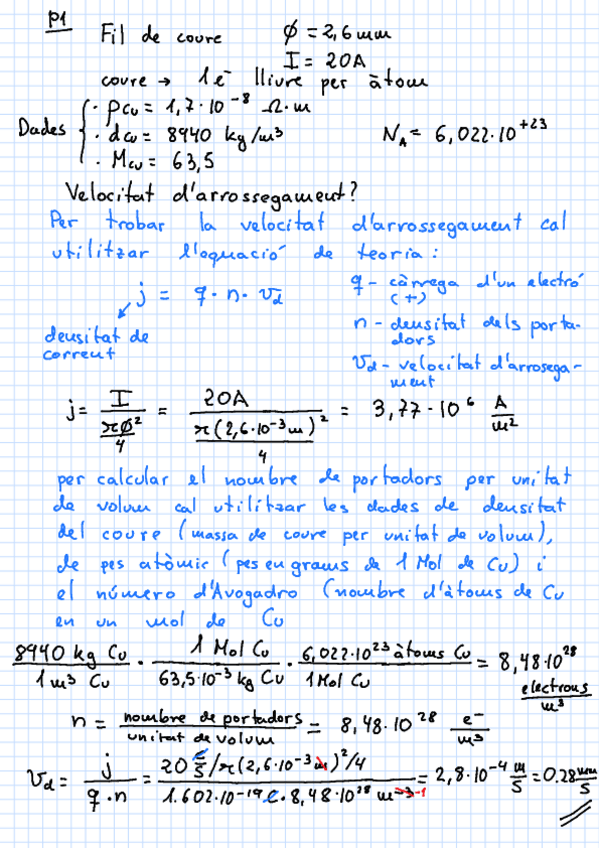 P1 Fil de coure ϕ = 2,6 mm
I = 20A
coure → 1 e⁻ lliure per àtom
Dades { · ρCu = 1,7·10⁻⁸ Ω·m
· dCu = 8940 kg/m³ NA = 6,022·10⁺²³
· MCu = 63,5
Velocitat d'arrossegament?
Per trobar la velocitat d'arrossegament cal
utilitzar l'equació de teoria:
j = q · n · vd
densitat de
corrent
q - càrrega d'un electró
(+)
n - densitat dels porta-
dors
vd - velocitat d'arrosega-
ment
j = I / (πϕ²/4) = 20A / (π(2,6·10⁻³m)²/4) = 3,77·10⁶ A/m²
per calcular el nombre de portadors per unitat
de volum cal utilitzar les dades de densitat
del coure (massa de coure per unitat de volum),
de pes atòmic (pes en grams de 1 Mol de Cu) i
el número d'Avogadro (nombre d'àtoms de Cu
en un mol de Cu
8940 kg Cu / 1 m³ Cu · 1 Mol Cu / 63,5·10⁻³ kg Cu · 6,022·10²³ àtoms Cu / 1 Mol Cu = 8,48·10²⁸ electrons/m³
n = nombre de portadors / unitat de volum = 8,48·10²⁸ e⁻/m³
vd = j / q·n = 20 C/s / π(2,6·10⁻³ m)²/4 / 1.602·10⁻¹⁹ C · 8,48·10²⁸ m⁻³ ⁻¹ = 2,8·10⁻⁴ m/s = 0.28 mm/s